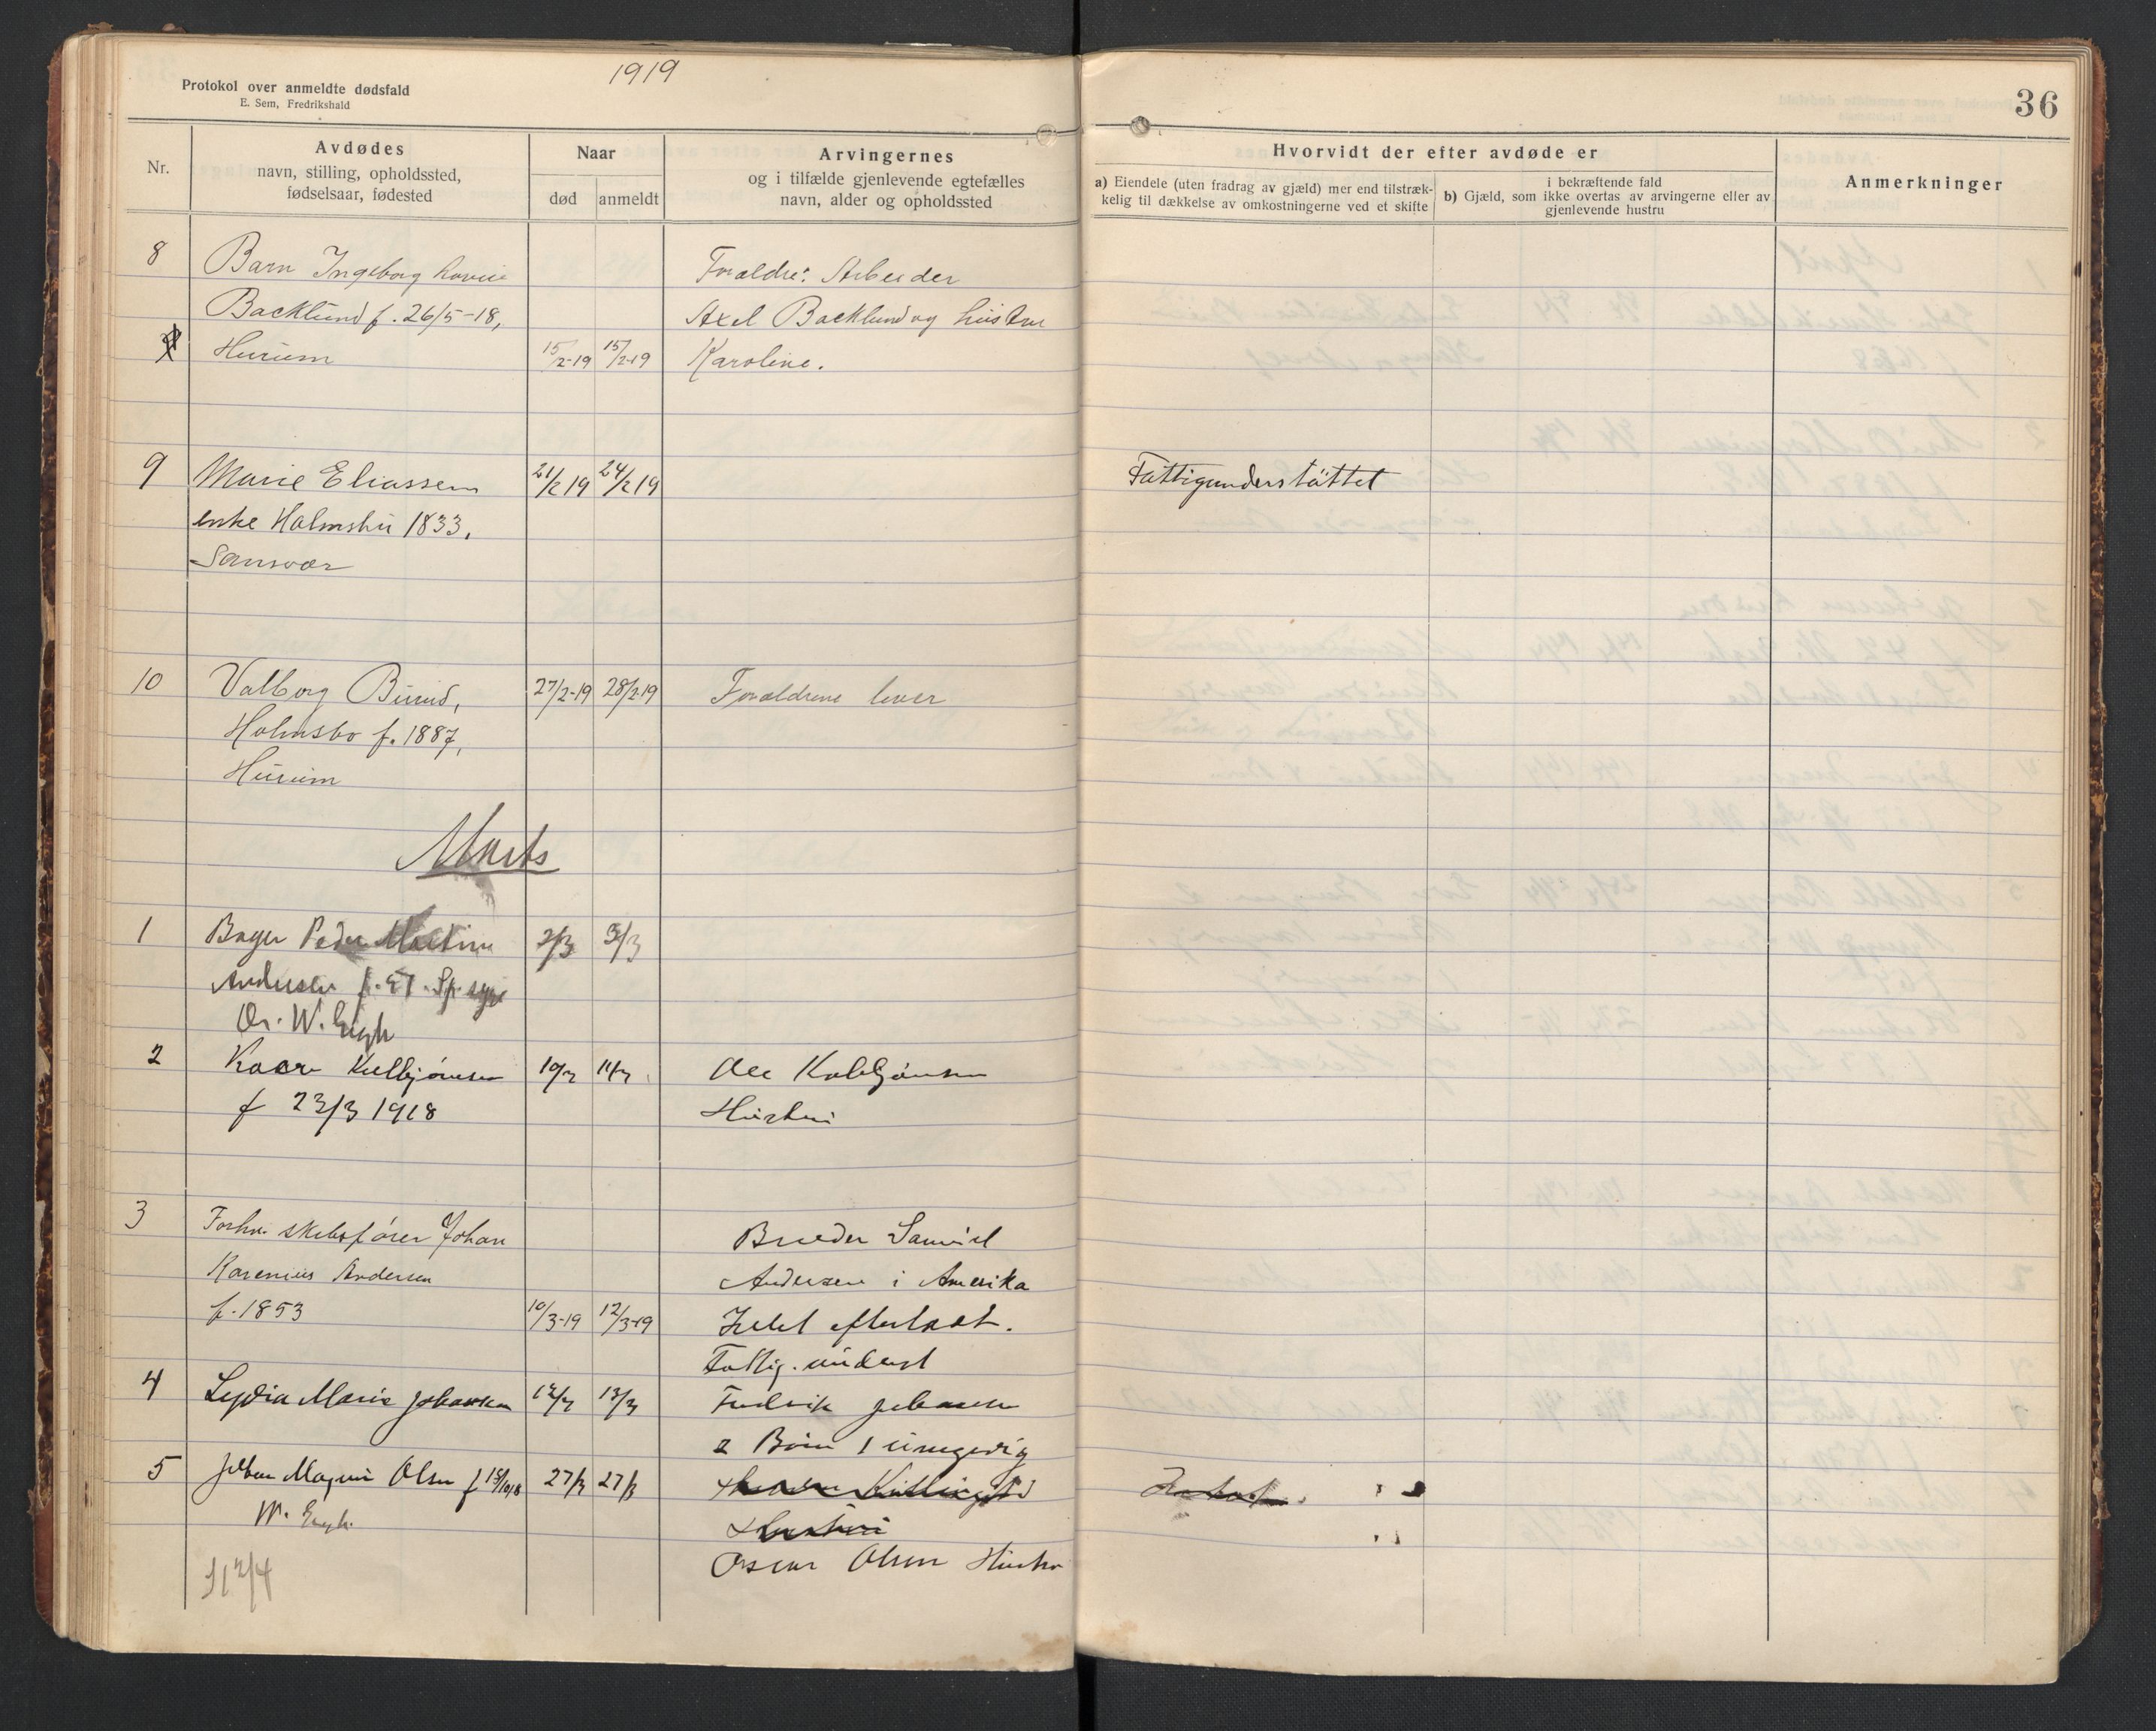 1919
Protokol over anmeldte dødsfald
E. Sem, Fredrikshald
36
Nr.
Avdødes
navn, stilling, opholdssted,
fødselsaar, fødested
Naar
død
anmeldt
Arvingernes
og i tilfælde gjenlevende egtefælles
navn, alder og opholdssted
Hvorvidt der efter avdøde er
a) Eiendele (uten fradrag av gjæld) mer end tilstræk-
kelig til dækkelse av omkostningerne ved et skifte
i bekræftende fald
b) Gjæld, som ikke overtas av arvingerne eller av
gjenlevende hustru
Anmerkninger
8
Barn Ingeborg
Backlund f. 26/5-18,
Hurum
15/2-19 15/2-19
Foraldre: Arbeider
Axel Backlund og hustru
Karoline.
9
Marie Eliassen
enke 1833.
Sansvær
21/2 19 24/2 19
Fattigunderstøttet
10
Valborg
Holmsbo f. 1887,
Hurum
27/2-19 28/2-19
Foraldrene lever
Marts
1
Peder Martin
Andersen f.
W. Engh
2/3 3/3
2
Kaare Kolbjørnsen
f 23/3 1918
10/3 11/3
Ole Kolbjørnsen
Hustru
3
Forhv. skibsfører Johan
Karenius Andersen
f. 1853
10/3-19 12/3-19
Broder Samuel
Andersen i Amerika
Intet efterladt.
Fattig. underst
4
Lydia Marie Johansen
12/3 13/3
Fredrik Johansen
2 Børn 1 umyndig
5
Johan Magnus Olsen f 13/10 18
W. Engh.
27/3 27/3
Oscar Olsen Hustru